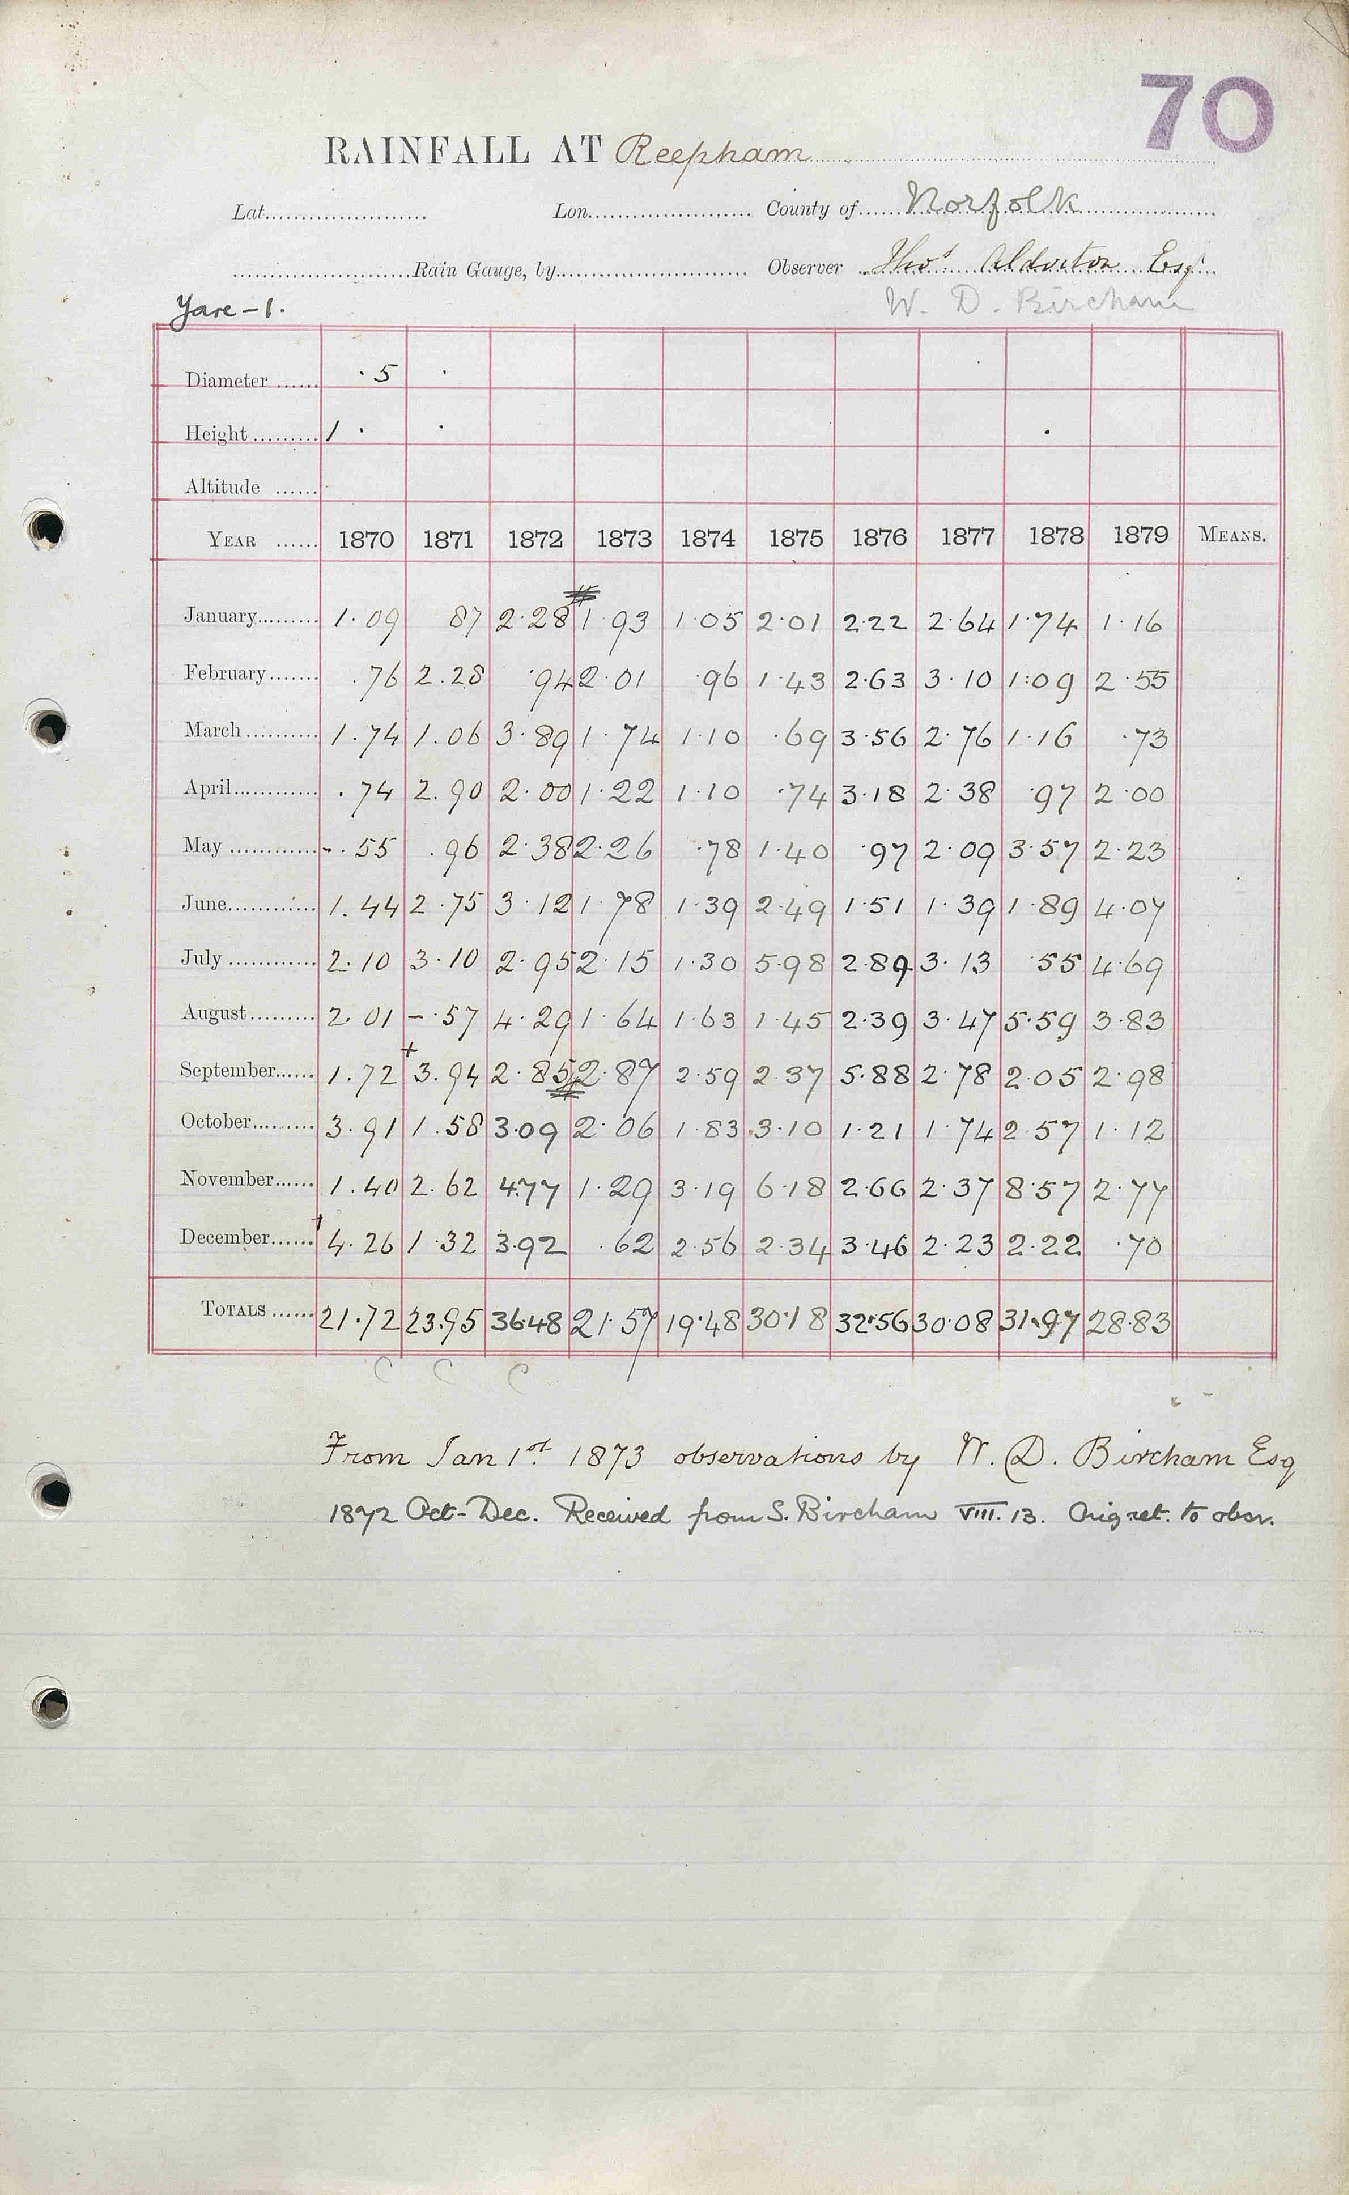 70
RAINFALL AT Reepham
Lat. Lon. County of Norfolk
Rain Gauge, by Observer Thos. Esqr
W. D. Bircham
Yare-1.
Diameter ...... .5
Height ......... 1 .
Altitude ......
YEAR ...... 1870 1871 1872 1873 1874 1875 1876 1877 1878 1879 MEANS.
January......... 1.09 87 2.28 1.93 1.05 2.01 2.22 2.64 1.74 1.16
February....... .76 2.28 .94 2.01 .96 1.43 2.63 3.10 1.09 2.55
March .......... 1.74 1.06 3.89 1.74 1.10 .69 3.56 2.76 1.16 .73
April............ .74 2.90 2.00 1.22 1.10 .74 3.18 2.38 .97 2.00
May ............ -.55 .96 2.38 2.26 .78 1.40 .97 2.09 3.57 2.23
June............ 1.44 2.75 3.12 1.78 1.39 2.49 1.51 1.39 1.89 4.07
July ............ 2.10 3.10 2.95 2.15 1.30 5.98 2.89 3.13 .55 4.69
August......... 2.01 -.57 4.29 1.64 1.63 1.45 2.39 3.47 5.59 3.83
September...... 1.72 +3.94 2.85 2.87 2.59 2.37 5.88 2.78 2.05 2.98
October......... 3.91 1.58 3.09 2.06 1.83 3.10 1.21 1.74 2.57 1.12
November...... 1.40 2.62 4.77 1.29 3.19 6.18 2.66 2.37 8.57 2.77
December...... +4.26 1.32 3.92 .62 2.56 2.34 3.46 2.23 2.22 .70
TOTALS ...... 21.72 23.95 36.48 21.57 19.48 30.18 32.56 30.08 31.97 28.83
C C C
From Jan 1st 1873 observations by W. D. Bircham Esq
1872 Oct-Dec. Received from S. Bircham VIII. 13. Orig ret. to obsr.